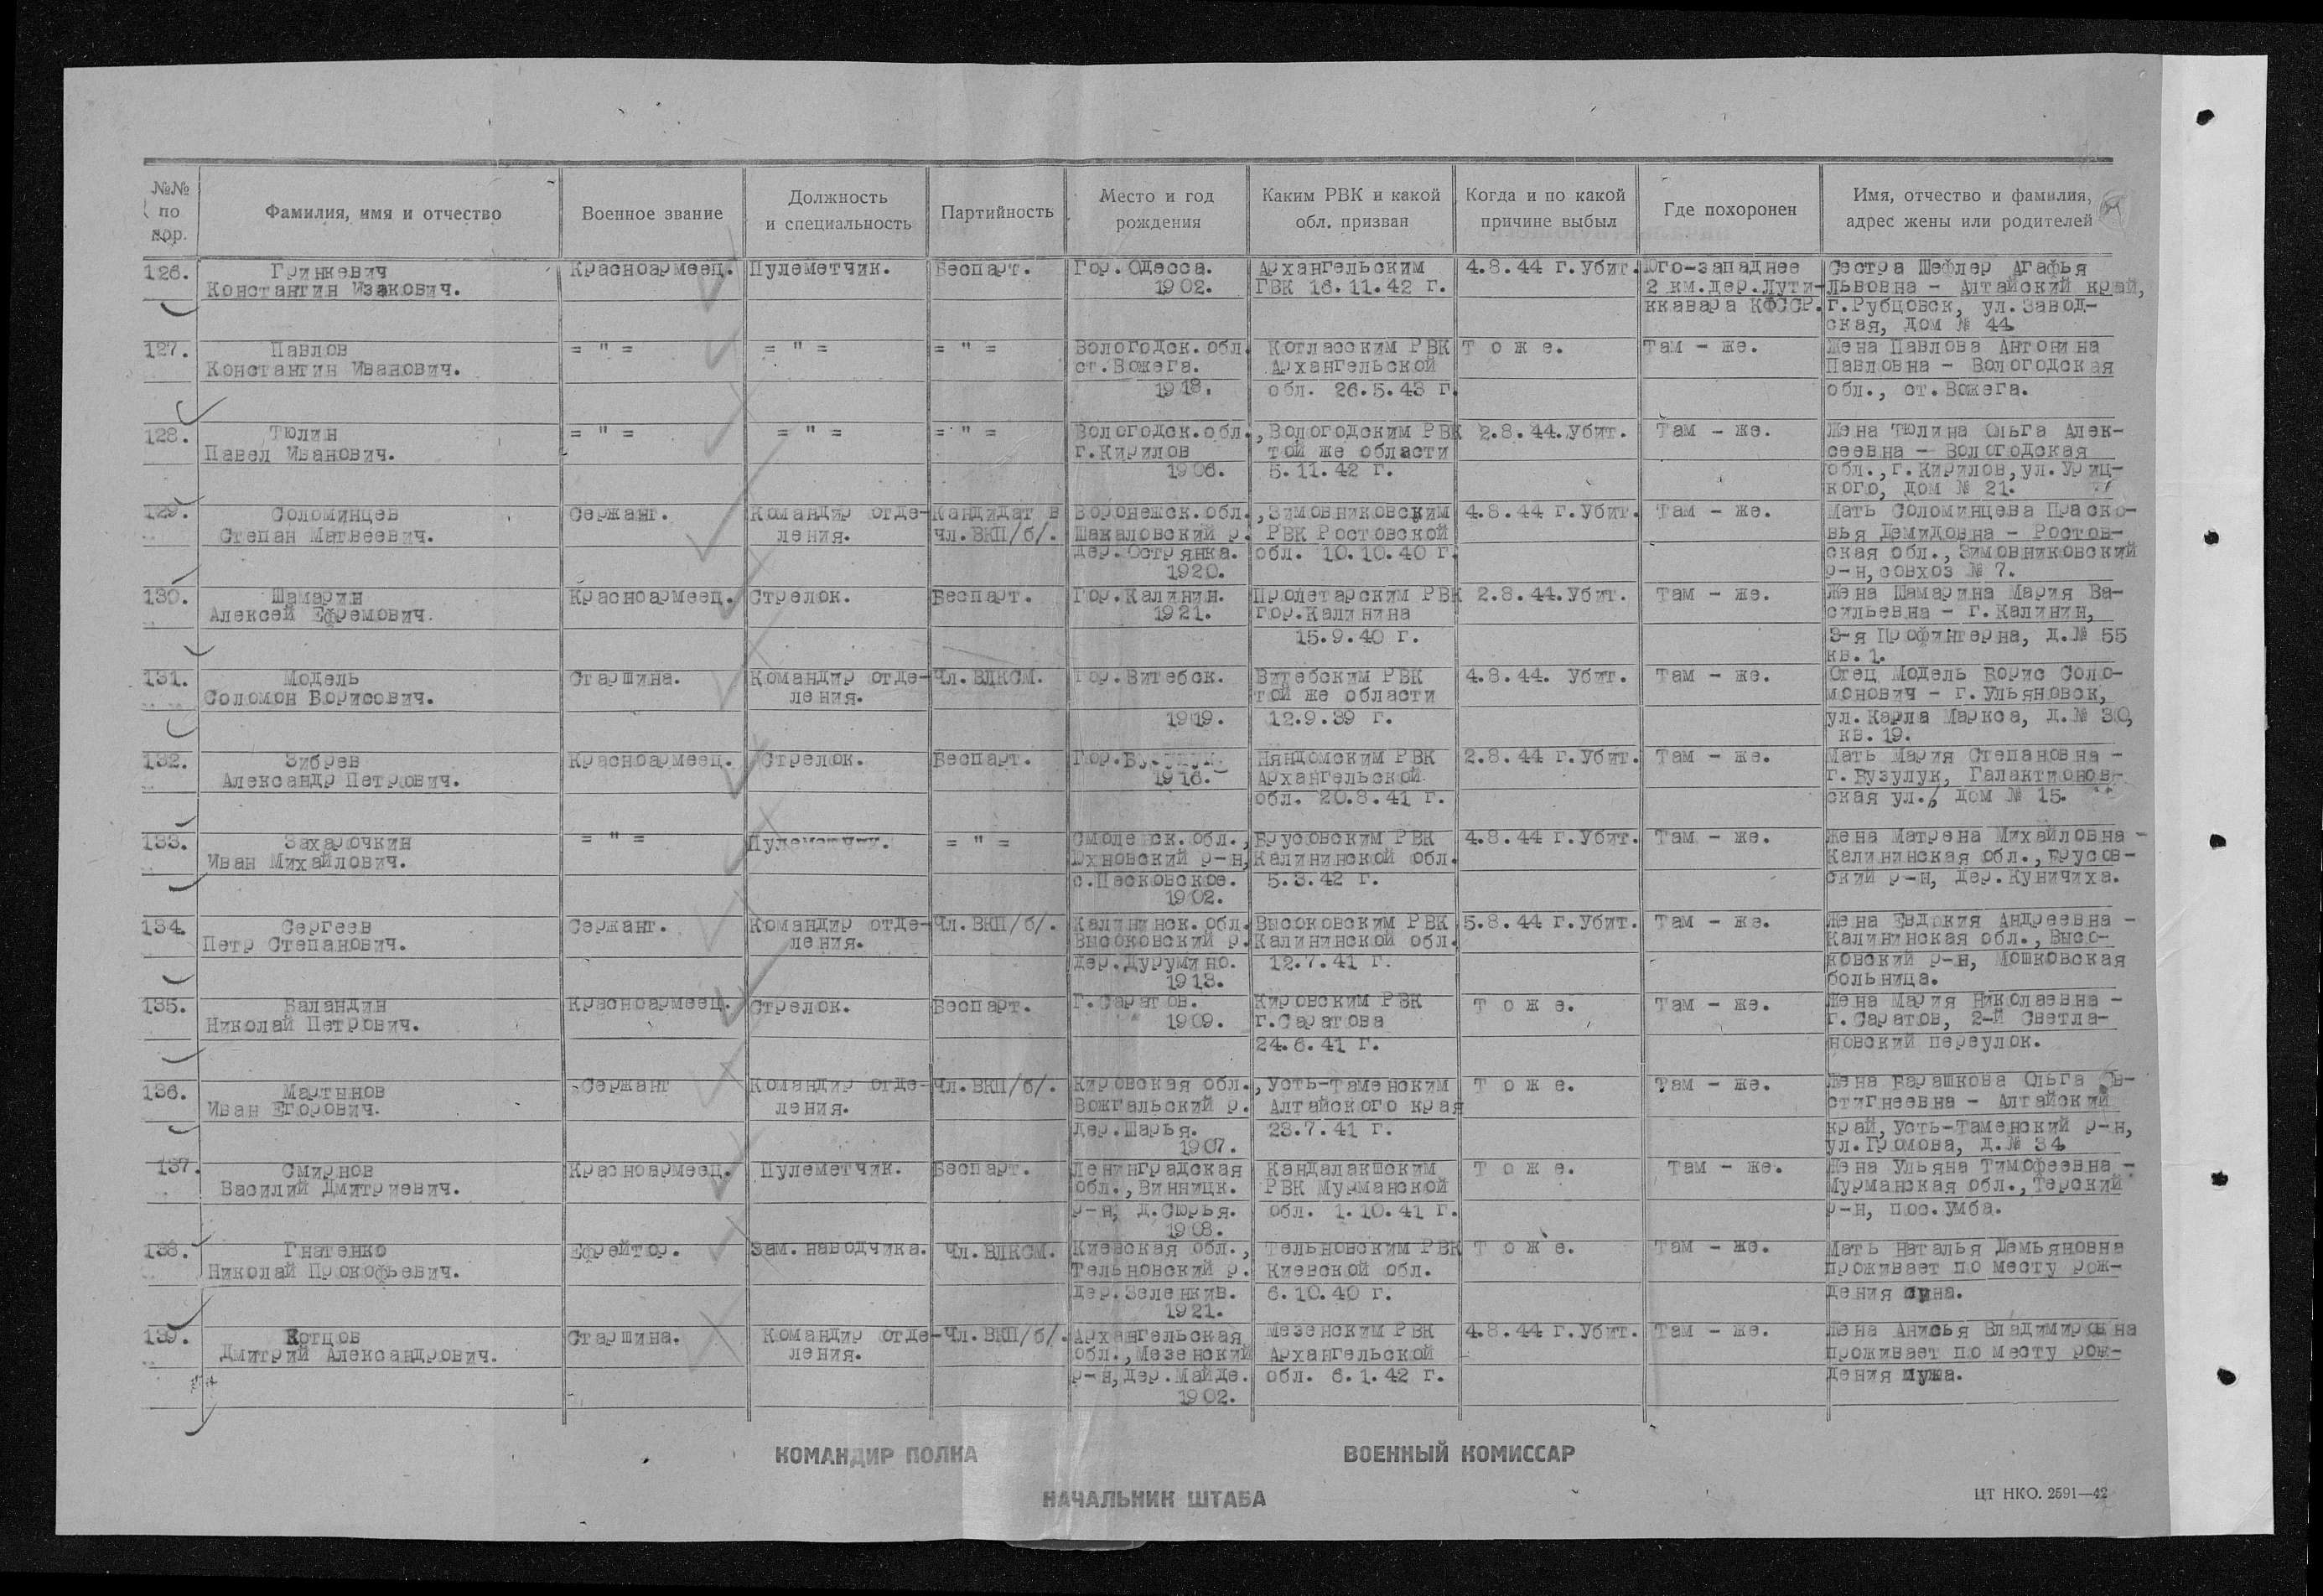 №№ по пор.
Фамилия, имя и отчество
Военное звание
Должность и специальность
Партийность
Место и год рождения
Каким РВК и какой обл. призван
Когда и по какой причине выбыл
Где похоронен
Имя, отчество и фамилия, адрес жены или родителей
126. Гринкевич Красноармеец. Пулеметчик. Беспарт. Гор.Одесса. Архангельским 4.8.44 г.Убит. Юго-западнее Сестра Шефлер Агафья
Константин Изакович. 1902. ГВК 16.11.42 г. 2 км.дер.Лути- Львовна - Алтайский край,
ккавара КФССР. г.Рубцовск, ул.Завод-
ская, дом № 44.
127. Павлов = " = = " = = " = Вологодск.обл. Котласским РВК Т о ж е. Там - же. Жена Павлова Антонина
Константин Иванович. ст.Вожега. Архангельской Павловна - Вологодская
1918. обл. 26.5.43 г. обл., ст.Вожега.
128. Тюлин = " = = " = = " = Вологодск.обл., Вологодским РВК 2.8.44.Убит. Там - же. Жена Тюлина Ольга Алек-
Павел Иванович. г.Кирилов той же области сеевна - Вологодская
1906. 5.11.42 г. обл.,г.Кирилов,ул.Уриц-
кого, дом № 21.
129. Соломинцев Сержант. Командир отде- Кандидат в Воронежск.обл., Зимовниковским 4.8.44 г.Убит. Там - же. Мать Соломинцева Праско-
Степан Матвеевич. ления. чл.ВКП/б/. Шакаловский р. РВК Ростовской вья Демидовна - Ростов-
дер.Острянка. обл. 10.10.40 г. ская обл., Зимовниковский
1920. р-н,совхоз № 7.
130. Шамарин Красноармеец. Стрелок. Беспарт. Гор.Калинин. Пролетарским РВК 2.8.44.Убит. Там - же. Жена Шамарина Мария Ва-
Алексей Ефремович. 1921. гор.Калинина сильевна - г.Калинин,
15.9.40 г. 3-я Профинтерна, д.№ 55
кв.1.
131. Модель Старшина. Командир отде- Чл.ВЛКСМ. Гор.Витебск. Витебским РВК 4.8.44. Убит. Там - же. Отец Модель Борис Соло-
Соломон Борисович. ления. той же области монович - г.Ульяновск,
1919. 12.9.39 г. ул.Карла Маркса, д.№ 30,
кв.19.
132. Зибрев Красноармеец. Стрелок. Беспарт. Гор. Няндомским РВК 2.8.44 г.Убит. Там - же. Мать Мария Степановна -
Александр Петрович. 1916. Архангельской г.Бузулук, Галактионов-
обл. 20.8.41 г. ская ул., дом № 15.
133. Захарочкин = " = Пулеметчик. = " = Смоленск.обл., Брусовским РВК 4.8.44 г.Убит. Там - же. Жена Матрена Михайловна -
Иван Михайлович. Юхновский р-н, Калининской обл. Калининская обл., Брусов-
с.Песковское. 5.3.42 г. ский р-н, дер.Куничиха.
1902.
134. Сергеев Сержант. Командир отде- Чл.ВКП/б/. Калининск.обл. Высоковским РВК 5.8.44 г.Убит. Там - же. Жена Евдокия Андреевна -
Петр Степанович. ления. Высоковский р. Калининской обл. Калининская обл., Высо-
дер.Дурумино. 12.7.41 г. ковский р-н, Мошковская
1913. больница.
135. Баландин Красноармеец. Стрелок. Беспарт. Г.Саратов. Кировским РВК Т о ж е. Там - же. Жена Мария Николаевна -
Николай Петрович. 1909. г.Саратова г.Саратов, 2-й Светла-
24.6.41 г. новский переулок.
136. Мартынов Сержант Командир отде- Чл.ВКП/б/. Кировская обл., Усть-Таменским Т о ж е. Там - же. Жена Барашкова Ольга Ев-
Иван Егорович. ления. Вожгальский р. Алтайского края стигнеевна - Алтайский
дер.Шарья. 23.7.41 г. край,Усть-Таменский р-н,
1907. ул.Громова, д.№ 34
137. Смирнов Красноармеец. Пулеметчик. Беспарт. Ленинградская Кандалакшским Т о ж е. Там - же. Жена Ульяна Тимофеевна -
Василий Дмитриевич. обл.,Винницк. РВК Мурманской Мурманская обл.,Терский
р-н, д.Сюрья. обл. 1.10.41 г. р-н, пос.Умба.
1908.
138. Гнатенко Ефрейтор. Зам.наводчика. Чл.ВЛКСМ. Киевская обл., Тельновским РВК Т о ж е. Там - же. Мать Наталья Демьяновна
Николай Прокофьевич. Тельновский р. Киевской обл. проживает по месту рож-
дер.Зеленкив. 6.10.40 г. дения сына.
1921.
139. Котцов Старшина. Командир отде- Чл.ВКП/б/. Архангельская Мезенским РВК 4.8.44 г.Убит. Там - же. Жена Анисья Владимировна
Дмитрий Александрович. ления. обл.,Мезенский Архангельской проживает по месту рож-
р-н,дер.Майде. обл. 6.1.42 г. дения мужа.
1902.
КОМАНДИР ПОЛКА ВОЕННЫЙ КОМИССАР
НАЧАЛЬНИК ШТАБА
ЦТ НКО. 2591—42